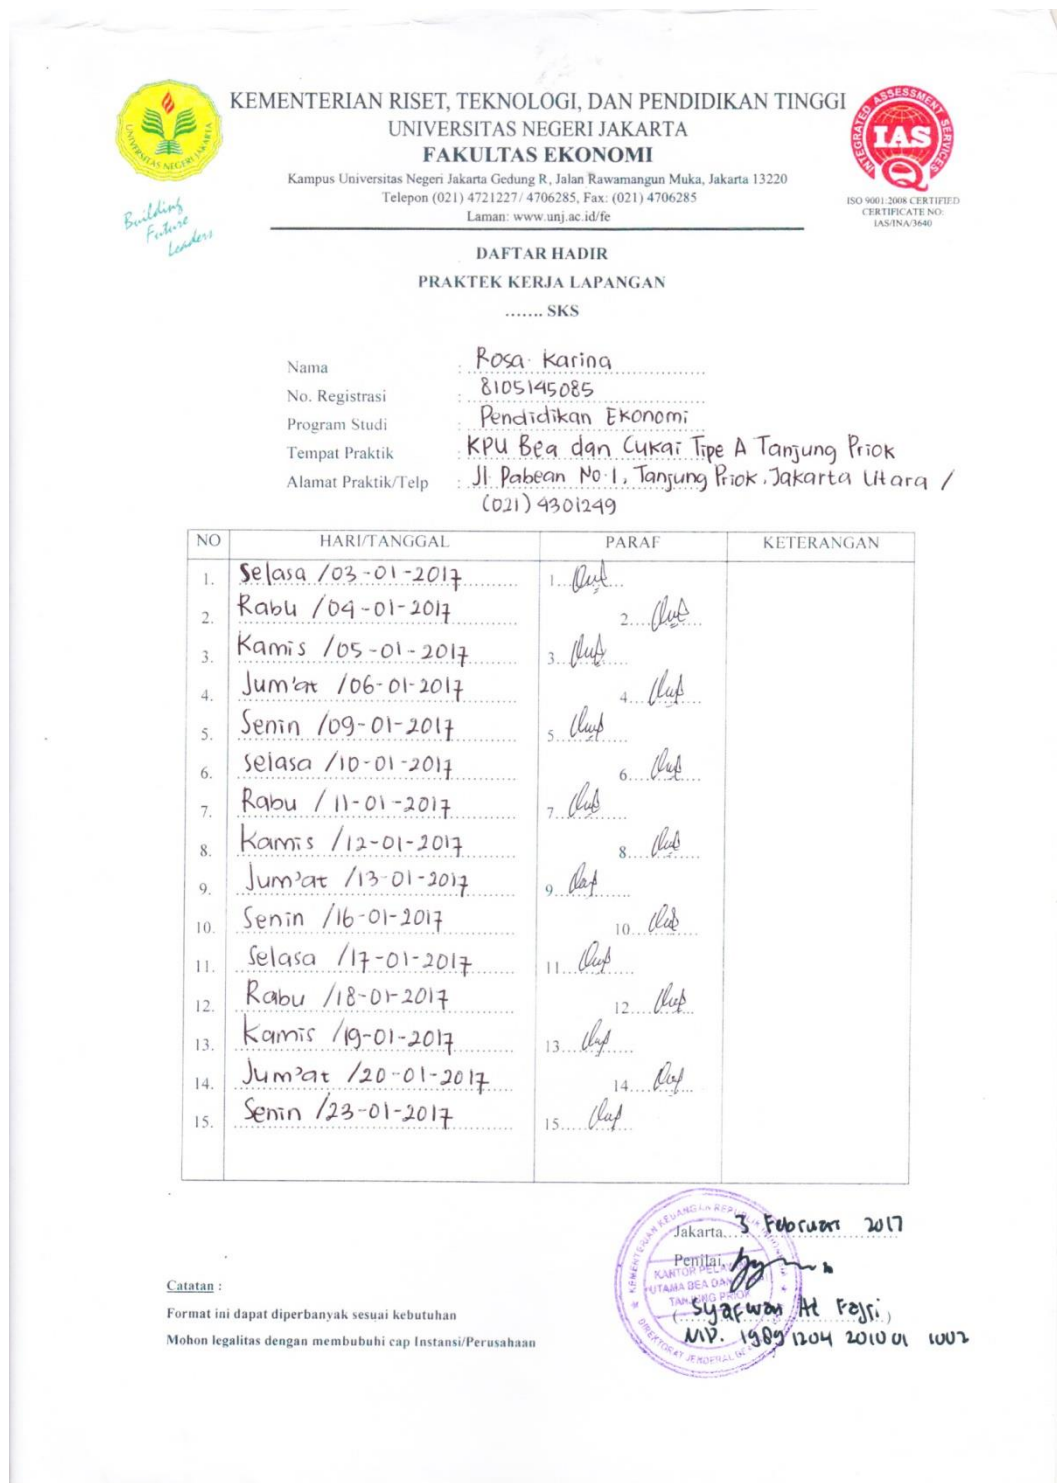 KEMENTERIAN RISET, TEKNOLOGI, DAN PENDIDIKAN TINGGI
UNIVERSITAS NEGERI JAKARTA
FAKULTAS EKONOMI
Kampus Universitas Negeri Jakarta Gedung R, Jalan Rawamangun Muka, Jakarta 13220
Telepon (021) 4721227/ 4706285, Fax: (021) 4706285
Laman: www.unj.ac.id/fe
UNIVERSITAS NEGERI JAKARTA
Building
Future
Leaders
INTEGRATED ASSESSMENT SERVICES
IAS
ISO 9001:2008 CERTIFIED
CERTIFICATE NO:
IAS/INA/3640
DAFTAR HADIR
PRAKTEK KERJA LAPANGAN
....... SKS
Nama : Rosa Karina
No. Registrasi : 8105145085
Program Studi : Pendidikan Ekonomi
Tempat Praktik : KPU Bea dan Cukai Tipe A Tanjung Priok
Alamat Praktik/Telp : Jl. Pabean No.1, Tanjung Priok, Jakarta Utara /
(021) 4301249
NO HARI/TANGGAL PARAF KETERANGAN
1. Selasa /03-01-2017 1.
2. Rabu /04-01-2017 2.
3. Kamis /05-01-2017 3.
4. Jum'at /06-01-2017 4.
5. Senin /09-01-2017 5.
6. Selasa /10-01-2017 6.
7. Rabu / 11-01-2017 7.
8. Kamis /12-01-2017 8.
9. Jum'at /13-01-2017 9.
10. Senin /16-01-2017 10.
11. Selasa /17-01-2017 11.
12. Rabu /18-01-2017 12.
13. Kamis /19-01-2017 13.
14. Jum'at /20-01-2017 14.
15. Senin /23-01-2017 15.
Jakarta, 3 Februari 2017
Penilai,
(Syafwan Al Fajri)
NIP. 19891204 201001 1002
Catatan :
Format ini dapat diperbanyak sesuai kebutuhan
Mohon legalitas dengan membubuhi cap Instansi/Perusahaan